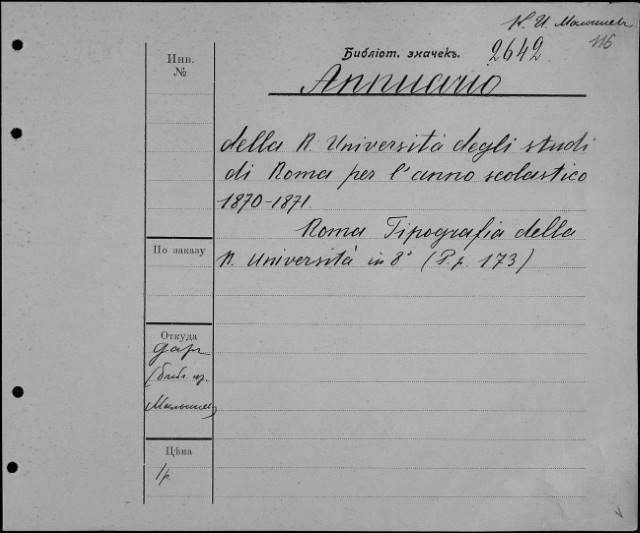 К. И. Малышев
116
Инв.
№
Библіот. значекъ.
2642
Annuario
della R. Università degli studi
di Roma per l'anno scolastico
1870-1871.
Roma Tipografia della
R. Università in 8° (P.p. 173)
По заказу
Откуда
даръ
Малышев
Цѣна
1р.